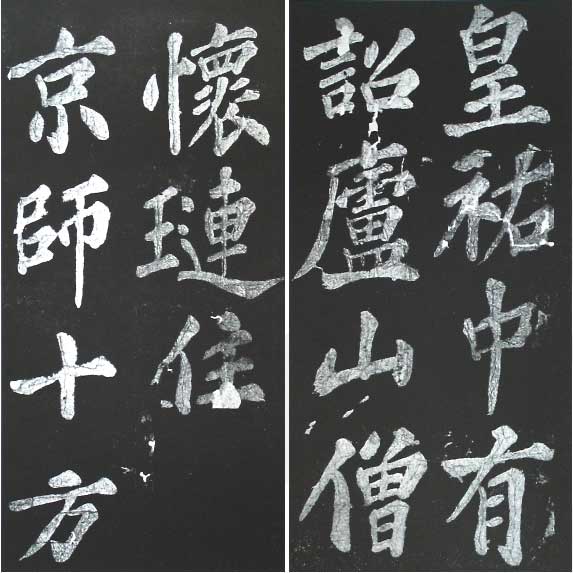 皇祐中有
詔廬山僧
懷璉住
京師十方